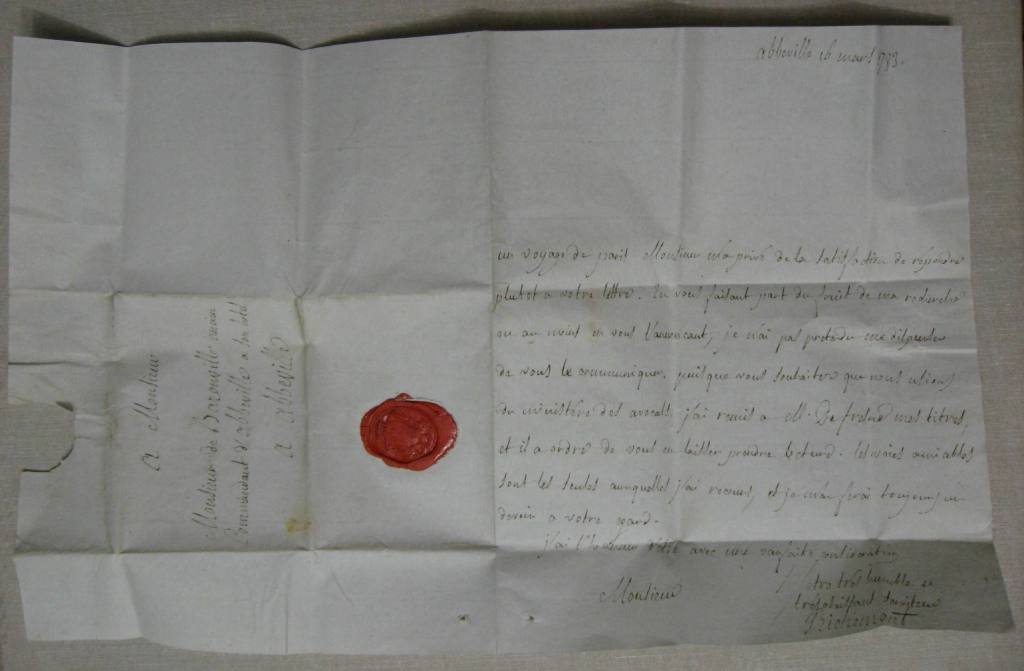 abbeville 16 mars 1783.
un voyage de paris Monsieur m'a privé de la satisfaction de repondre
plutot a votre lettre. En vous faisant part du fruit de ma recherche
ou au moins en vous l'annoncant, je n'ai pas pretendu me dispenser
de vous le communiquer. puisque vous souhaitez que nous usions
du ministère des avocats j'ai remis a M. De mes titres,
et il a ordre de vous en laisser prendre lecture. les voies amicables
sont les seules auxquelles j'ai recours, et je m'en ferai toujours un
devoir a votre egard.
j'ai l'honneur d'etre avec une parfaite consideration
Monsieur
Votre tres humble et
tres obeissant serviteur
Richemont
A Monsieur
Monsieur de
Commandant d'abbeville a son hotel
a abbeville